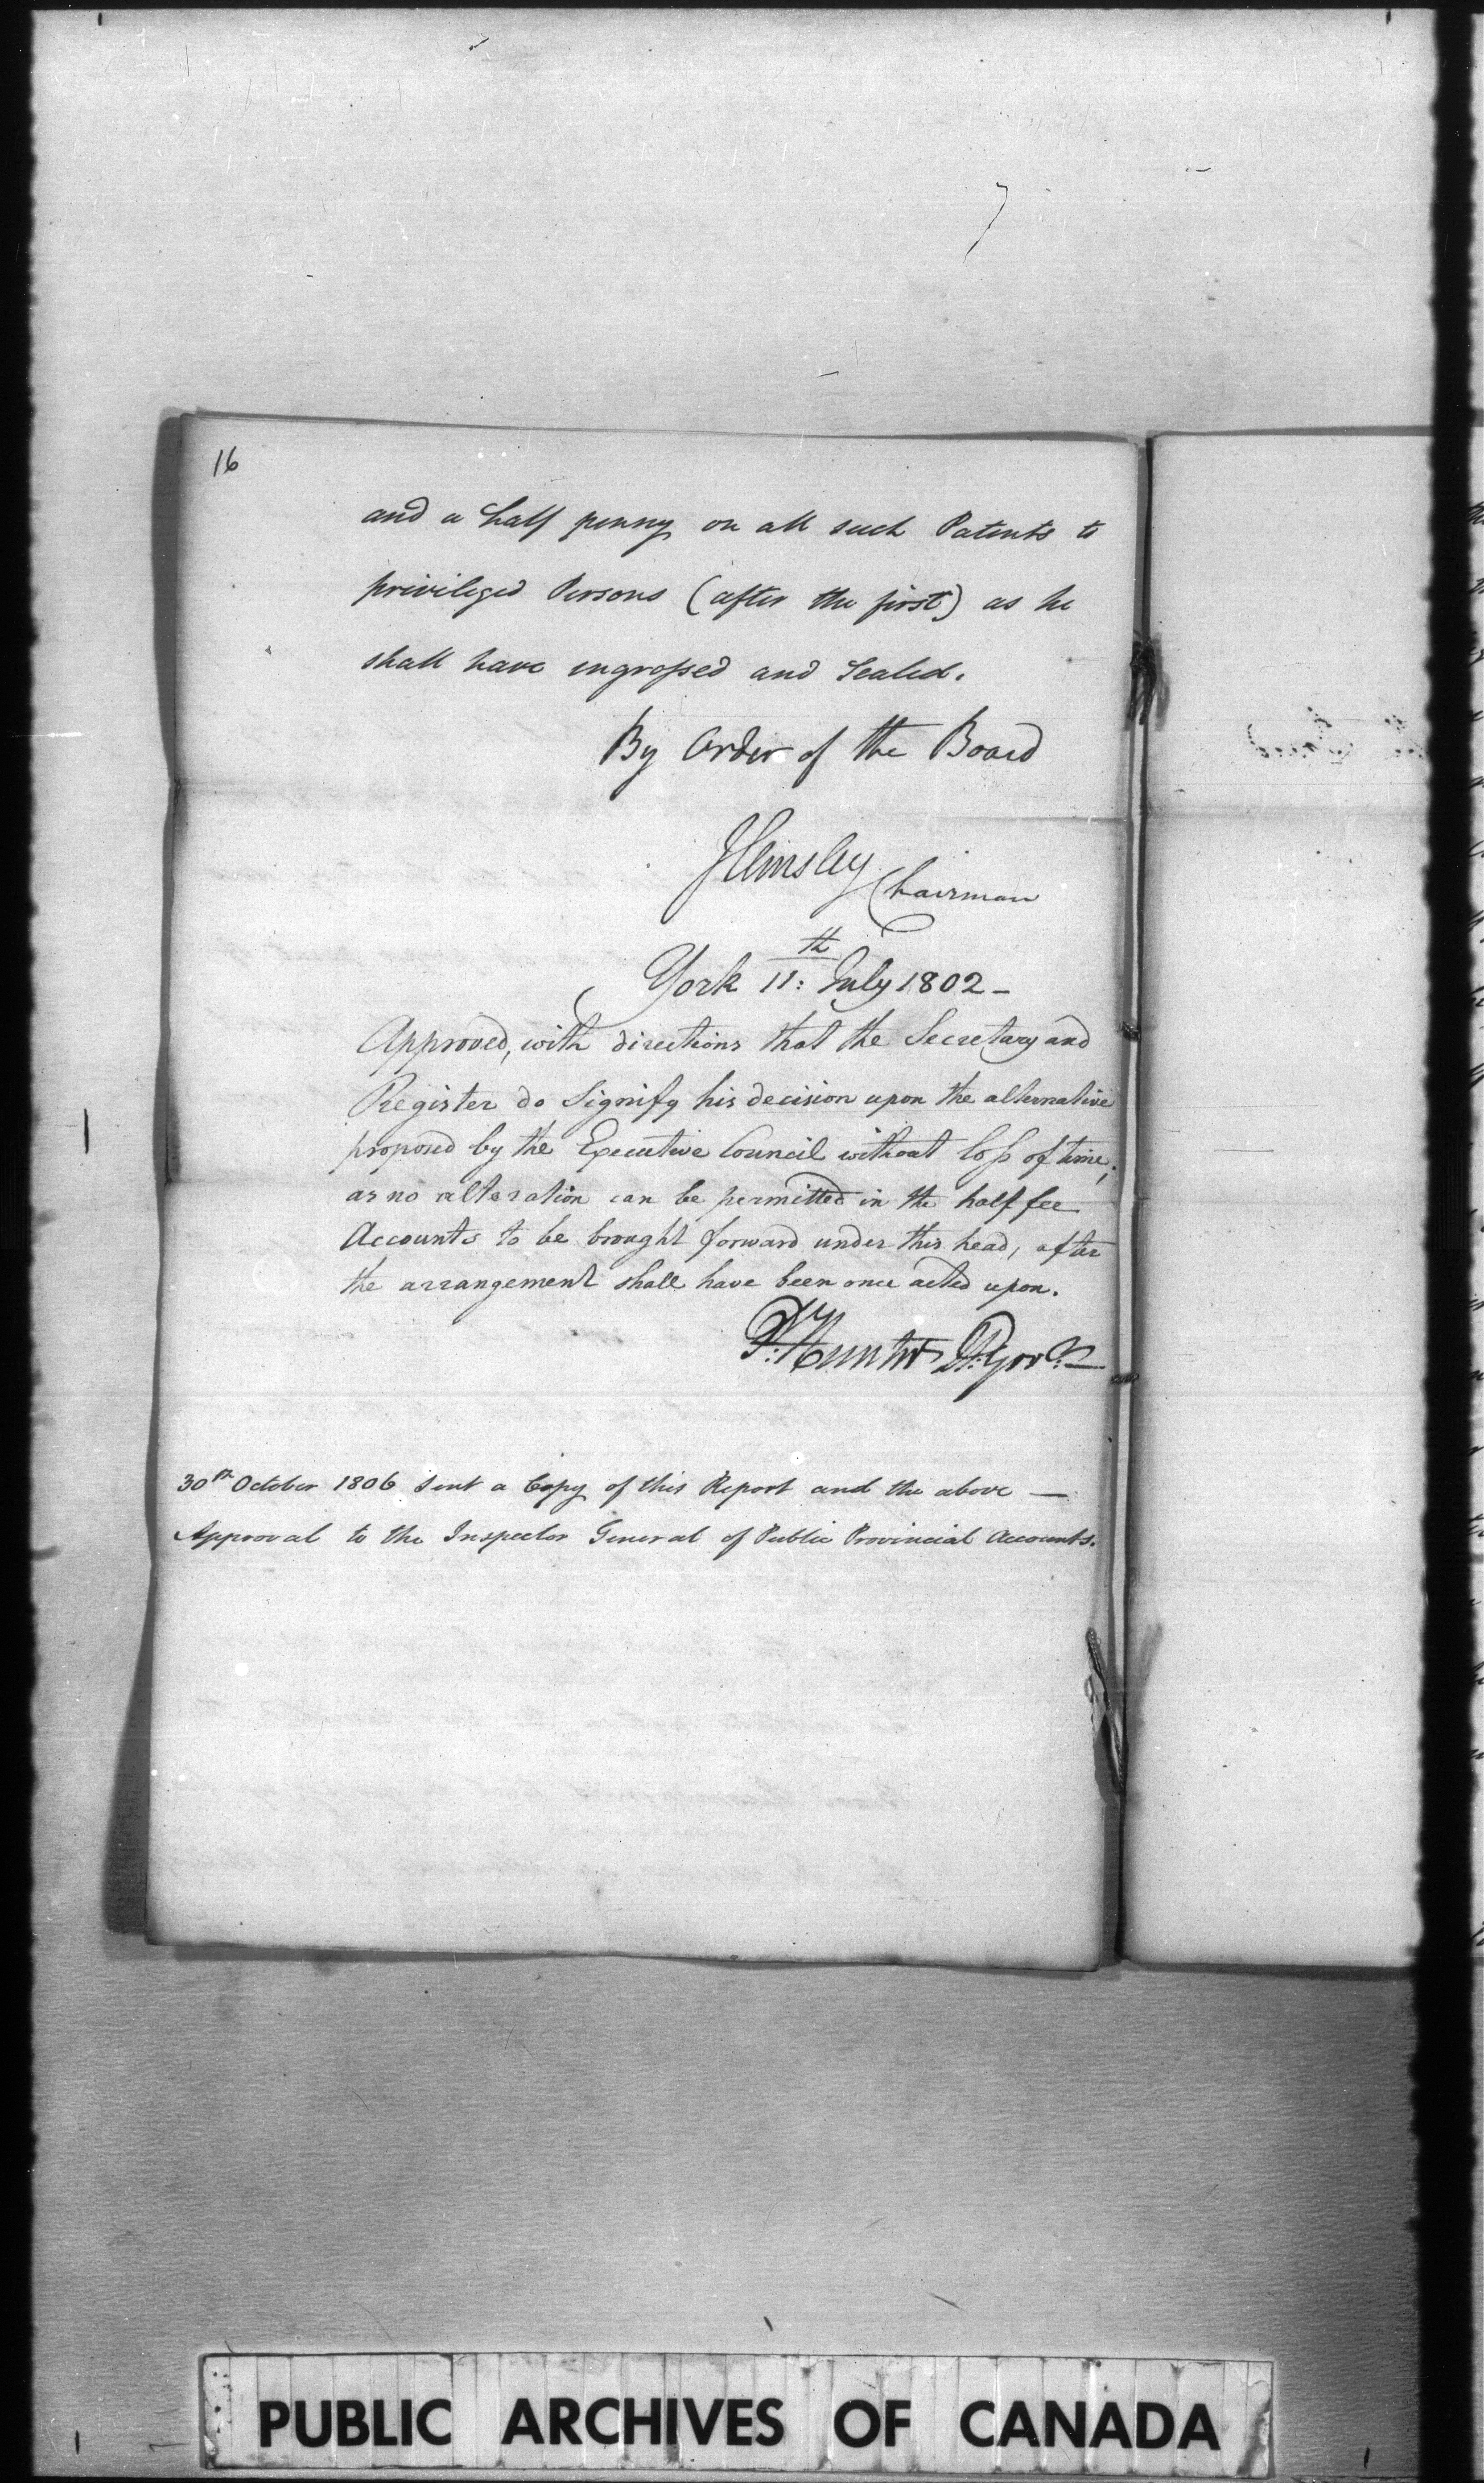 16
and a half penny on all such Patents to
privileged Persons (after the first) as he
shall have ingrossed and Sealed.
By Order of the Board
J Elmsley Chairman
York 11th: July 1802 -
Approved, with directions that the Secretary and
Register do Signify his decision upon the alternative
proposed by the Executive Council without loss of time,
as no alteration can be permitted in the half fee
Accounts to be brought forward under this head, after
the arrangement shall have been once acted upon.
P: Hunter Lt: Govr: —
30th October 1806 Sent a Copy of this Report and the above —
Approval to the Inspector General of Public Provincial Accounts.
PUBLIC ARCHIVES OF CANADA